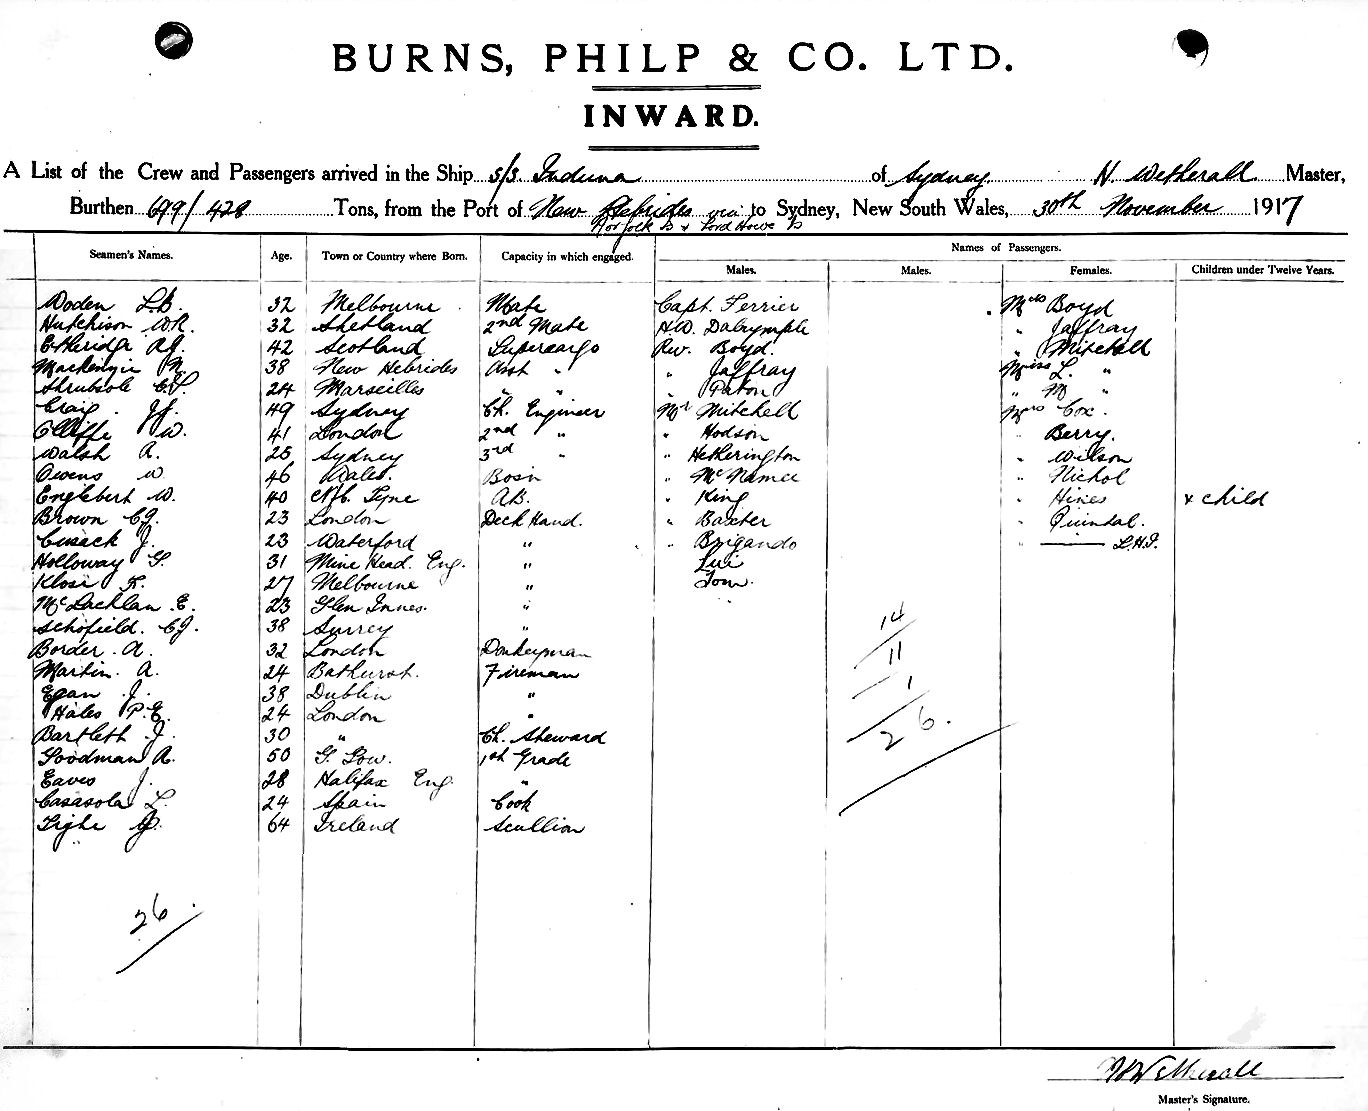 BURNS, PHILP & CO. LTD.
INWARD.
A List of the Crew and Passengers arrived in the Ship s/s Induna of Sydney H. Wetherall Master,
Burthen 699/428 Tons, from the Port of New Hebrides via to Sydney, New South Wales, 30th November 1917
Norfolk Is & Lord Howe Is
Names of Passengers.
Seamen's Names. Age. Town or Country where Born. Capacity in which engaged. Males. Males. Females. Children under Twelve Years.
Woden L.B. 32 Melbourne Mate Capt. Ferrier Mrs Boyd
Hutchison W.R. 32 Shetland 2nd Mate H.W. Dalrymple " Jaffray
Etheridge 42 Scotland Supercargo Rev. Boyd. " Mitchell
Mackenzie N. 38 New Hebrides Asst " " Jaffray Miss L. "
Shrubsole C.F. 24 Marseilles " " " Paton " M "
Craig J.J. 49 Sydney Ch. Engineer Mr Mitchell Mrs Cox.
Olliffe W. 41 London 2nd " " Hodson " Berry.
Walsh A. 25 Sydney 3rd " " Hetherington " Wilson
Owens W 46 Wales. Bosn " McNamee " Nichol
Englebert W. 40 N/c. Tyne A.B. " King " Hines & child
Brown C.J. 23 London Deck Hand. " Baxter " Quindal.
Cusack J. 23 Waterford " " Brigando "
Holloway G. 31 Mine Head. Eng. " Lui
Klose F. 27 Melbourne " Tom.
McLachlan E. 23 Glen Innes. "
Schofield. C.J. 38 Surrey "
Border. A. 32 London Donkeyman
Martin. A. 24 Bathurst. Fireman
Egan J. 38 Dublin "
Hales P.E. 24 London "
Bartlett J. 30 " Ch. Steward
Goodman A. 50 G. Gow. 1st Grade
Eaves J. 28 Halifax Eng. "
Casasola L. 24 Spain Cook
Tighe 64 Ireland Scullion
14
11
1
26.
26
H Wetherall
Master's Signature.